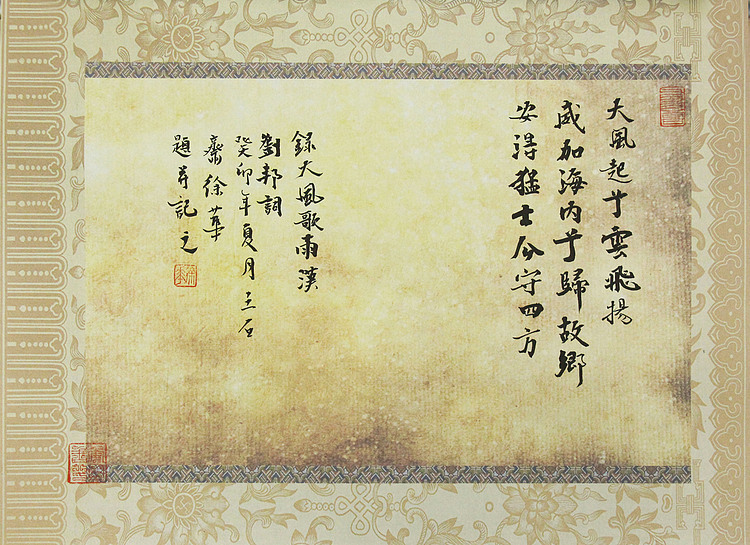 大風起兮雲飛揚
威加海内兮歸故鄉
安得猛士兮守四方
錄大風歌兩漢
劉邦詞
癸卯年夏月王石
齋徐華
題并記之